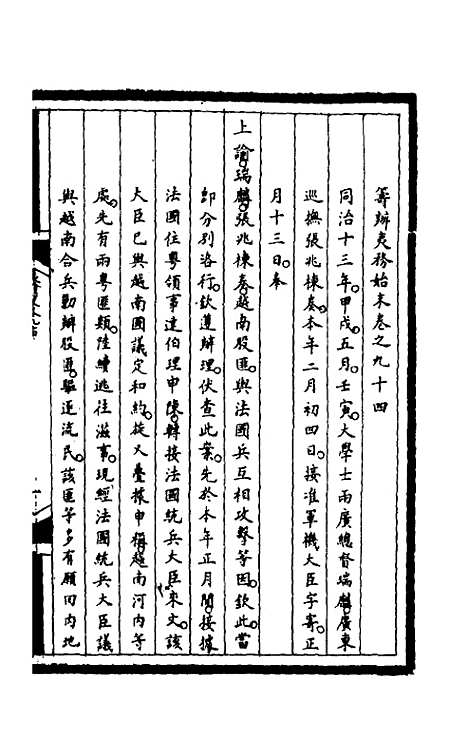 籌辦夷務始末卷之九十四
同治十三年。甲戌。五月。壬寅。大學士兩廣總督瑞麟。廣東
巡撫張兆棟奏。本年二月初四日。接准軍機大臣字寄正
月十三日。奉
上諭。瑞麟。張兆棟奏。越南股匪。與法國兵互相攻擊等因。欽此。當
即分別咨行。欽遵辦理。伏查此案。先於本年正月間。接據
法國住粵領事達伯理申陳。轉接法國統兵大臣來文。該
大臣已與越南國議定和約。旋又疊據申稱。越南河內等
處。先有兩粵匪類。陸續逃往滋事。現經法國統兵大臣議
與越南合兵勦辦股匪。驅逐流民。該匪等多有願回內地